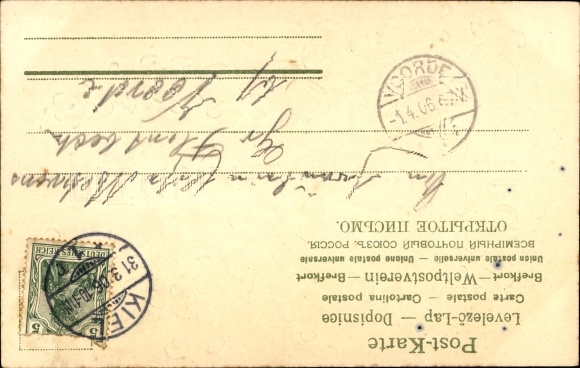 Post-Karte
Levelező-Lap — Dopisnice
Carte postale — Cartolina postale
Brefkort — Weltpostverein — Brefkort
Union postale universelle — Unione postale universale
ВСЕМІРНЫЙ ПОЧТОВЫЙ СОЮЗЪ. РОССІЯ.
ОТКРЫТОЕ ПИСЬМО.
DEUTSCHES REICH
5 5
KIEL
31.3.06
VOORDE
1.4.06
An
Gr. Flintbek
Voorde